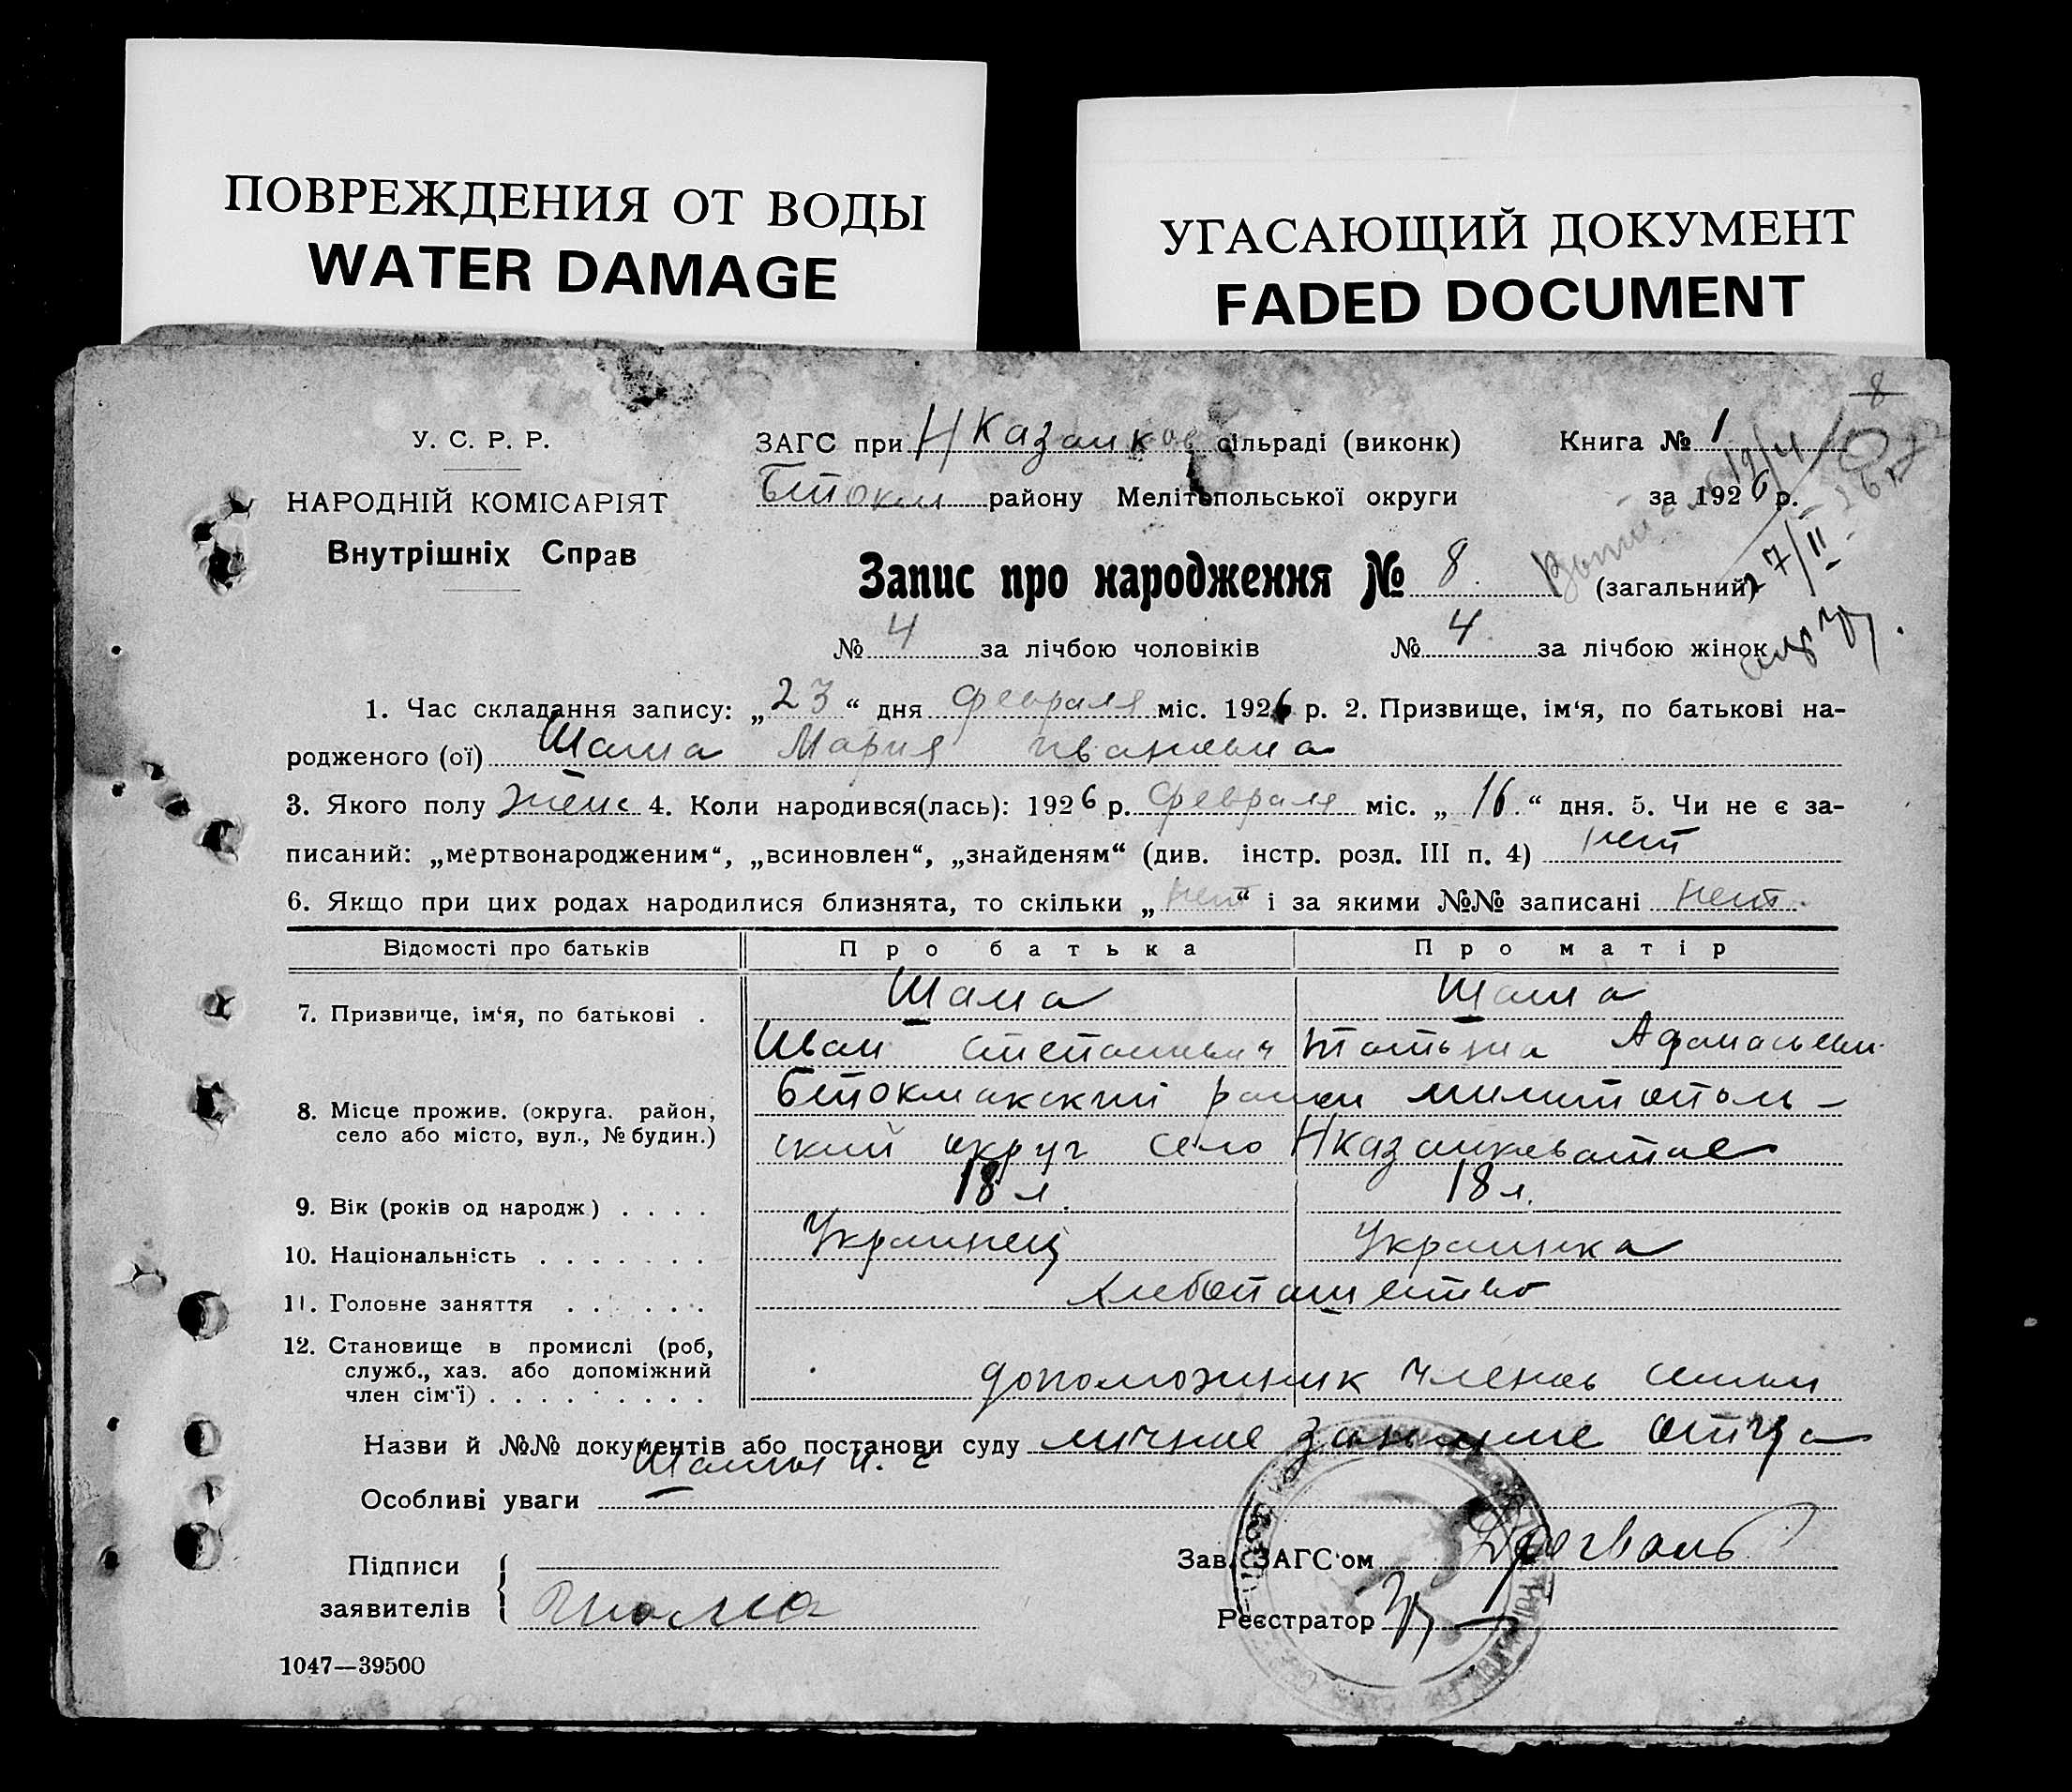 ПОВРЕЖДЕНИЯ ОТ ВОДЫ
WATER DAMAGE
УГАСАЮЩИЙ ДОКУМЕНТ
FADED DOCUMENT
8
У. С. Р. Р.
НАРОДНІЙ КОМІСАРІЯТ
Внутрішніх Справ
ЗАГС при Н Казанков сільраді (виконк)
Книга № 1
Бтокм району Мелітопольської округи
за 1926 р.
Запис про народження № 8. (загальний)
27/II
№ 4 за лічбою чоловіків № 4 за лічбою жінок
1. Час складання запису: „23“ дня февраля міс. 1926 р. 2. Призвище, ім‘я, по батькові на-
родженого (ої) Шама Мария ивановна
3. Якого полу женс 4. Коли народився(лась): 1926 р. февраля міс. „16“ дня. 5. Чи не є за-
писаний: „мертвонародженим“, „всиновлен“, „знайденям“ (див. інстр. розд. III п. 4) нет
6. Якщо при цих родах народилися близнята, то скільки „нет“ і за якими №№ записані нет.
Відомості про батьків Про батька Про матір
7. Призвище, ім‘я, по батькові . Шама Шама
Иван Степанович Татьяна Афанасьевн
8. Місце прожив. (округа. район, село або місто, вул., № будин.) Бтокмакский район милитополь-
ский округ село Нказанковатое
9. Вік (років од народж) . . . . 18 л. 18 л.
10. Національність . . . . . . . Украинец Украинка
11. Головне заняття . . . . . . хлебопашество
12. Становище в промислі (роб, служб., хаз. або допоміжний член сім‘ї) . . . . . . . . допоможник членов семьи
Назви й №№ документів або постанови суду личное заявление отца
Шамы И. С
Особливі уваги
Підписи
заявителів Шама
Зав. ЗАГС‘ом
Реєстратор
1047—39500